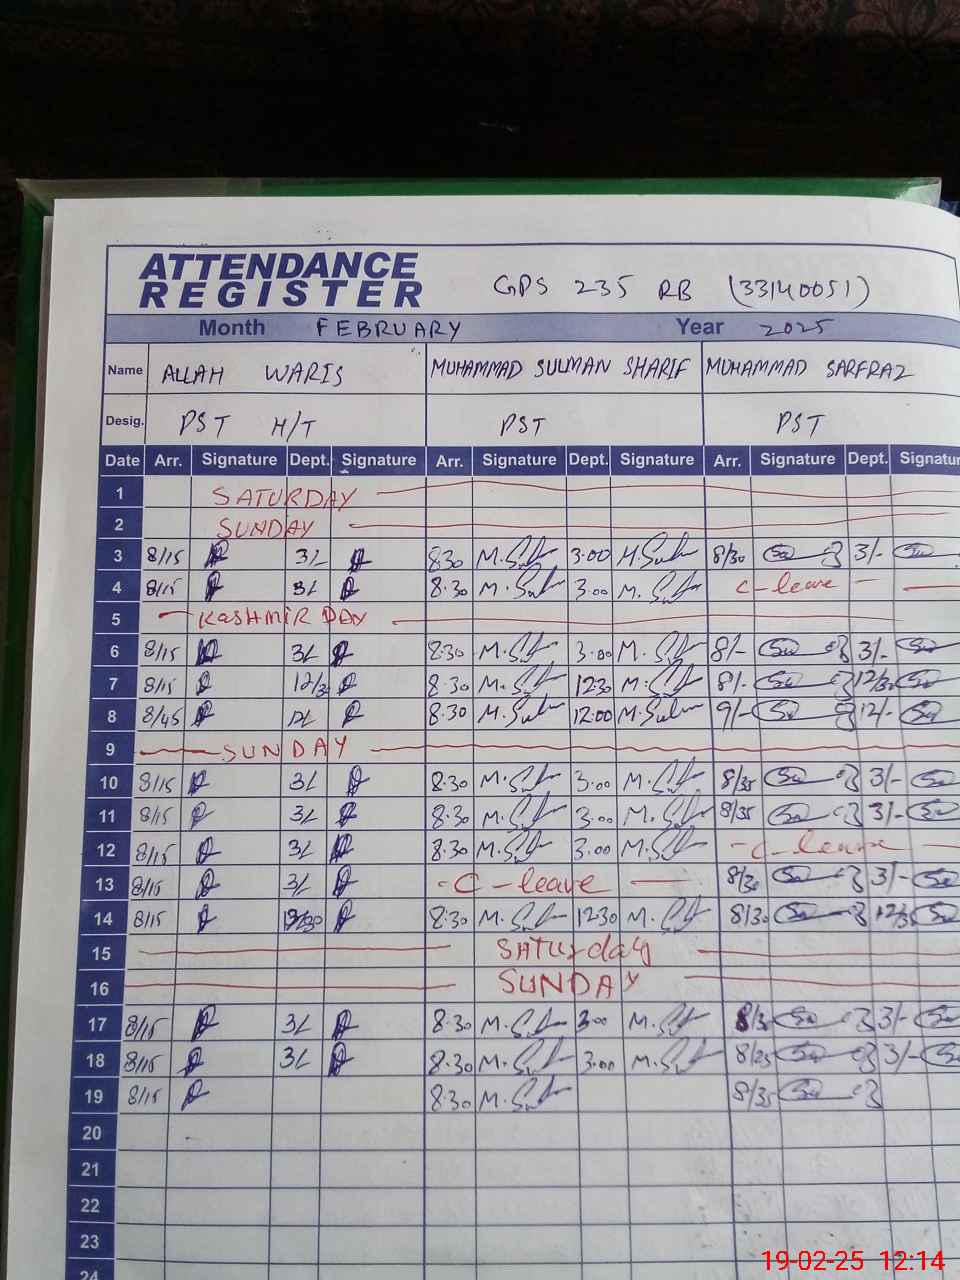 ATTENDANCE
REGISTER
GPS 235 RB (33140051)
Month FEBRUARY Year 2025
Name ALLAH WARIS MUHAMMAD SULMAN SHARIF MUHAMMAD SARFRAZ
Desig. PST H/T PST PST
Date Arr. Signature Dept. Signature Arr. Signature Dept. Signature Arr. Signature Dept. Signatur
1 SATURDAY
2 SUNDAY
3 8/15 3/- 8.30 3.00 8/30 3/-
4 8/15 3/- 8.30 3.00 C-leave
5 KASHMIR DAY
6 8/15 3/- 8.30 3.00 8/- 3/-
7 8/15 12/3 8.30 12.30 8/- 12/30
8 8/45 12/- 8.30 12.00 9/- 12/-
9 SUNDAY
10 8/15 3/- 8.30 3.00 8/35 3/-
11 8/15 3/- 8.30 3.00 8/35 3/-
12 8/15 3/- 8.30 3.00 C-leave
13 8/15 3/- C-leave 8/30 3/-
14 8/15 12/30 8.30 12.30 8/30 12/30
15 SATURDAY
16 SUNDAY
17 8/15 3/- 8.30 3.00 8/3 3/-
18 8/15 3/- 8.30 3.00 8/25 3/-
19 8/15 8.30 8/35
20
21
22
23
24
19-02-25 12:14